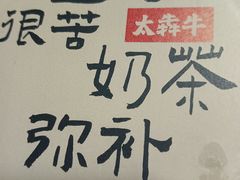 很苦 太犇牛
奶茶
弥补